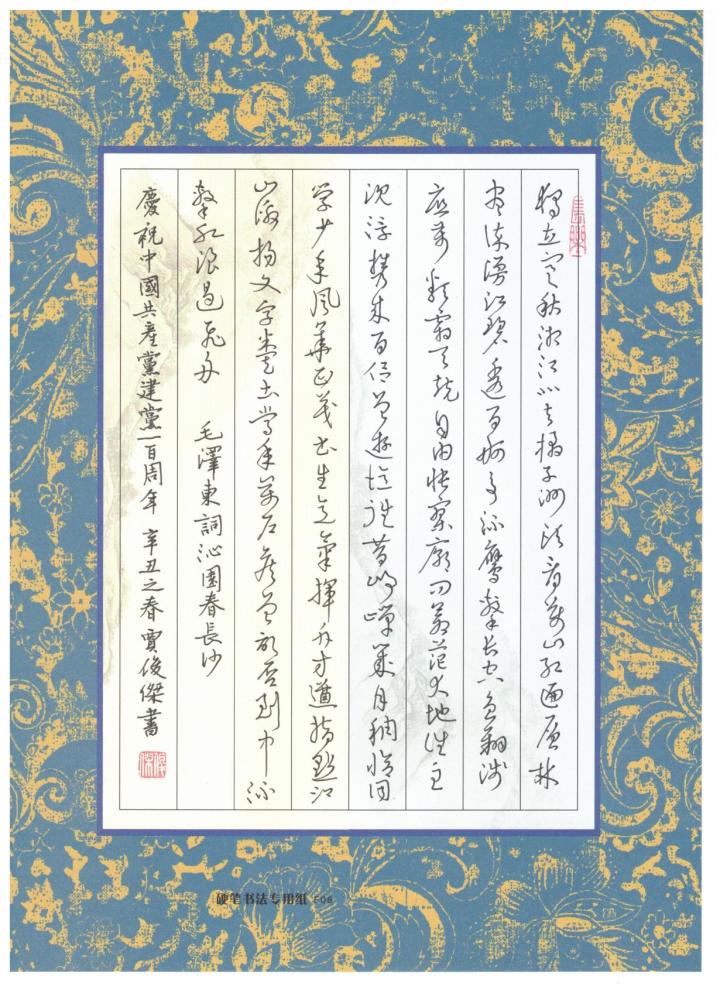 長樂
獨立寒秋湘江北去橘子洲頭看萬山紅遍層林
盡染漫江碧透百舸爭流鷹擊長空魚翔淺
底萬類霜天競自由悵寥廓問蒼茫大地誰主
沉浮攜來百侶曾遊憶往昔崢嶸歲月稠恰同
學少年風華正茂書生意氣揮斥方遒指點江
山激揚文字糞土當年萬戶侯曾記否到中流
擊水浪遏飛舟 毛澤東詞沁園春長沙
慶祝中國共產黨建黨一百周年 辛丑之春賈俊傑書
硬笔书法专用纸 F06